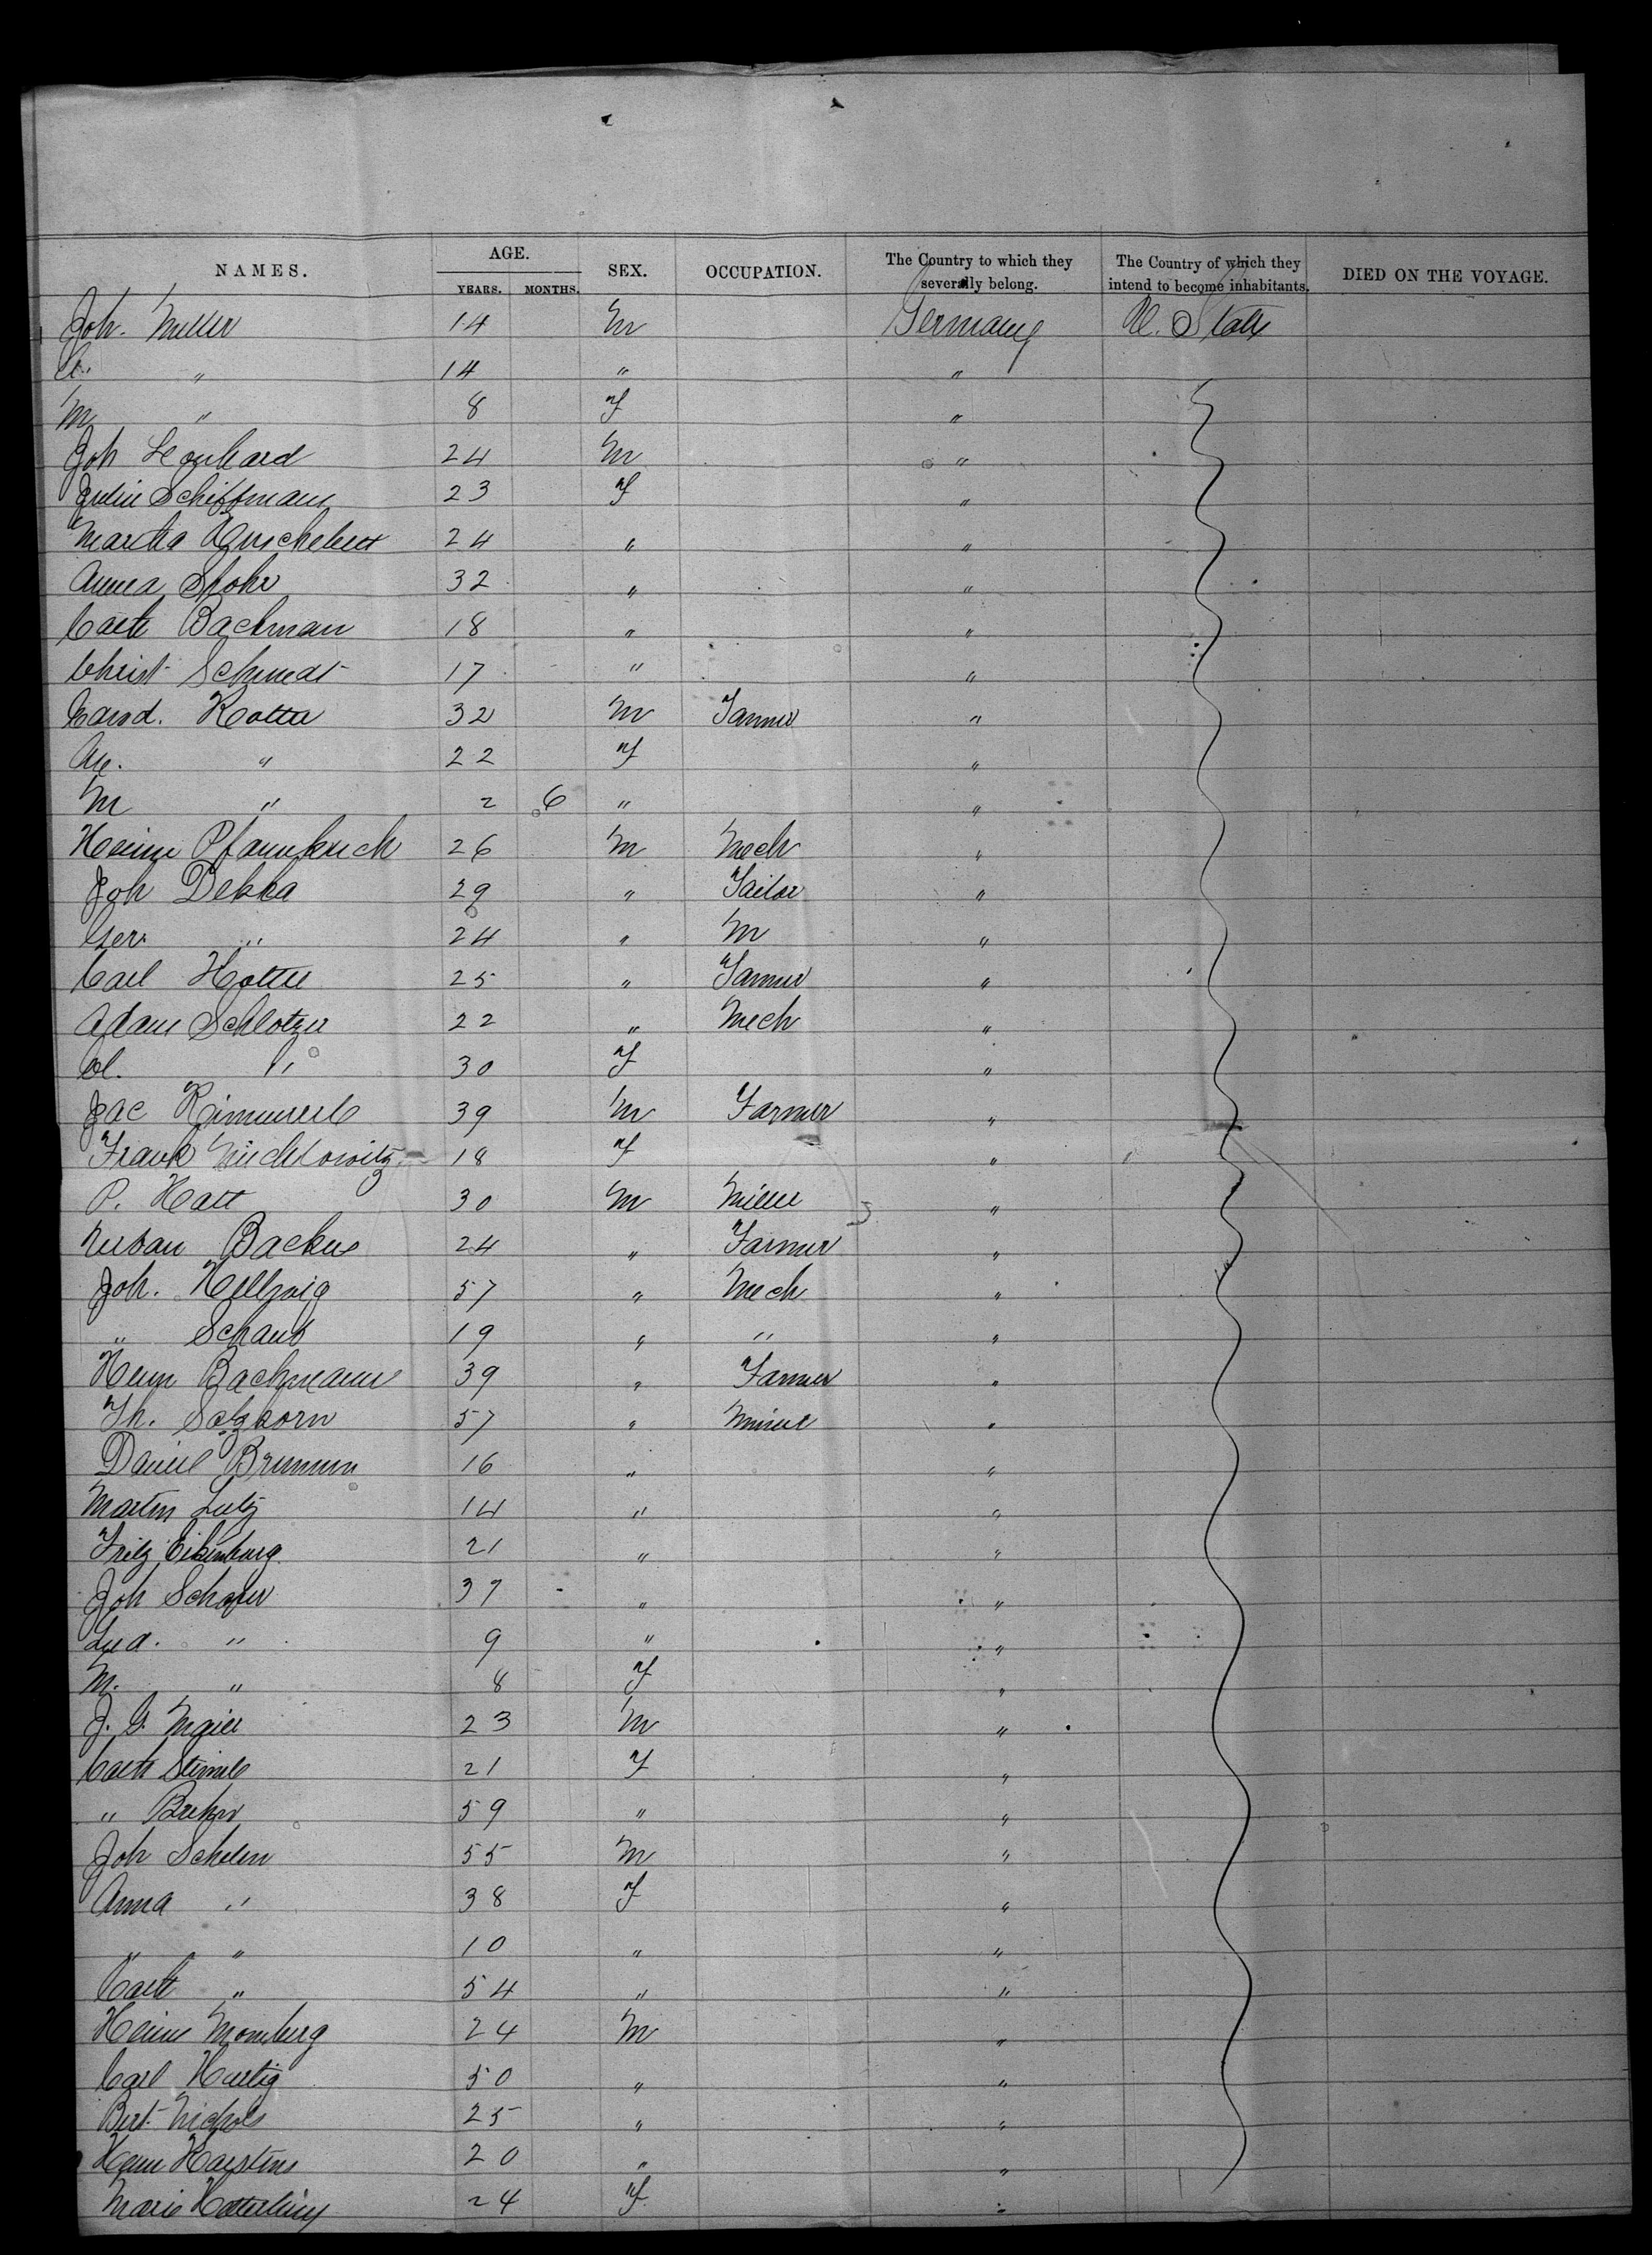 NAMES. AGE. SEX. OCCUPATION. The Country to which they severally belong. The Country of which they intend to become inhabitants. DIED ON THE VOYAGE.
YEARS. MONTHS.
Joh. Miller 14 M Germany U. States
" 14 " "
M " 8 F "
Joh Leonhard 24 M "
Julie Schiffmann 23 F "
Martha 24 " "
Anna Spohr 32 " "
Cath Bachman 18 " "
Christ Schmidt 17 " "
32 M Farmer "
" 22 F "
M " 2 6 " "
Heinr Pfannkuch 26 M Mech "
Joh Dekka 29 " Tailor "
Ger. " 24 " M "
Carl Hotte 25 " Farmer "
Adam Schlotzer 22 " Mech "
" 30 F "
Jac 39 M Farmer "
Frank 18 F " "
P. Hatt 30 M Miller "
Backus 24 " Farmer "
Joh. Hellwig 57 " Mech "
" Schaub 19 " " "
Henn Bachmann 39 " Farmer "
Th. Salzkorn 57 " Miner "
Daniel Brumm 16 " "
Martin Lutz 14 " "
Fritz Eikenburg 21 " "
Joh Schafer 37 " "
Lud. " 9 " "
M. " 8 F "
J. G. Maier 23 M "
Cath 21 F "
" 59 " "
Joh Schelen 55 M "
Anna " 38 F "
" " 10 " "
Cath " 54 " "
Heinr Momberg 24 M "
Carl Hartig 50 " "
Bert. Nichols 25 " "
Henn Karstens 20 " "
Marie 24 F "